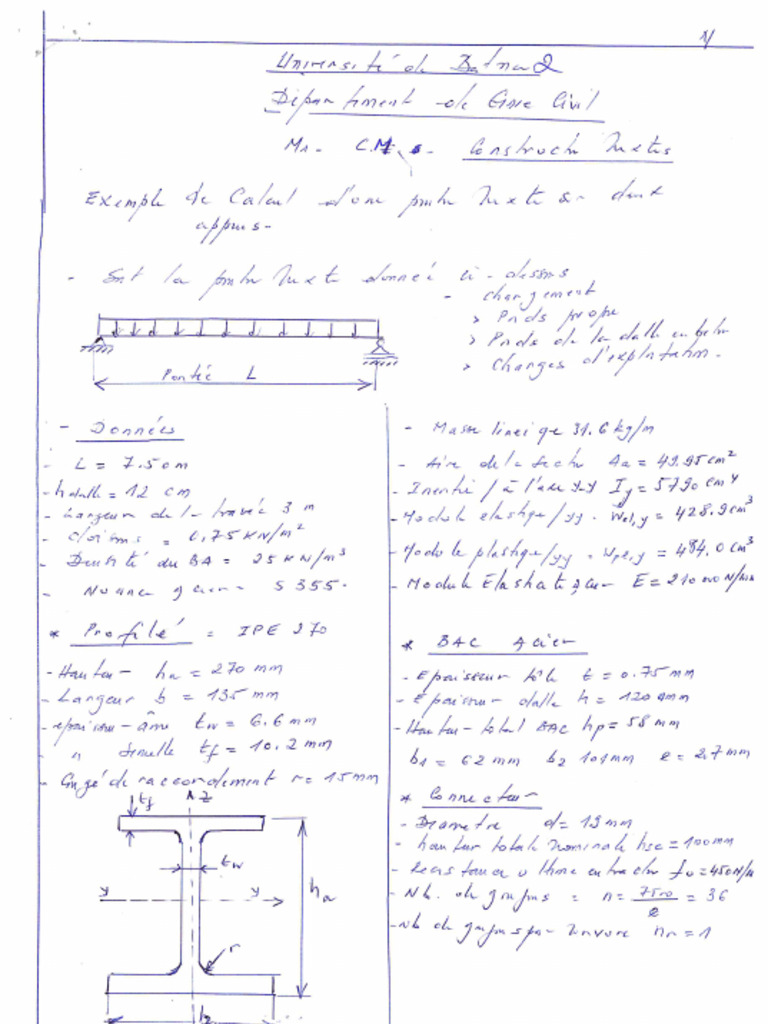 1/
Université de Batna 2
Département de Génie Civil
Mr. C.M.s. Constructn Mixtes
Exemple de Calcul d'une poutre Mixte sur deux
appuis.
- Soit la poutre Mixte donnée ci-dessus
- chargement
> Poids propre
> Poids de la dalle en béton
> Charges d'exploitation.
Portée L
- Données
- L = 7.50m
- hdalle = 12 cm
- Largeur de la travée 3 m
- Cloisons = 0,75 KN/m²
- Densité du BA = 25 KN/m³
- Nuance acier S 355.
* Profilé = IPE 270
- Hauteur ha = 270 mm
- Largeur b = 135 mm
- epaisseur âme tw = 6.6 mm
- " semelle tf = 10.2 mm
- Congé de raccordement r = 15 mm
tf
z
tw
y y
ha
r
b
- Masse lineique 31.6 kg/m
- Aire de la section Aa = 49.95 cm²
- Inertie / à l'axe yy Iy = 5790 cm⁴
- Module elastique/yy. Wel,y = 428.9 cm³
- Module plastique/yy = Wpl,y = 484.0 cm³
- Module Elasticité acier E = 210000 N/mm
* BAC Acier
- Epaisseur tôle t = 0.75 mm
- Epaisseur dalle h = 120 mm
- Hauteur total BAC hp = 58 mm
b1 = 62 mm b2 101 mm e = 2.7 mm
* Connecteur
- Diametre d = 19 mm
- hauteur totale nominale hsc = 100 mm
- Resistance ultime en traction fu = 450 N/m
- Nb. de goujons = n = 7500/e = 36
- Nb de goujons par nervure nr = 1